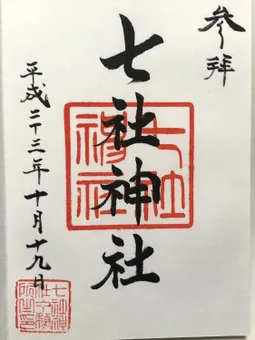 参拝
七社神社
平成二十三年十月十九日
七社神社
七社神社社務所之印